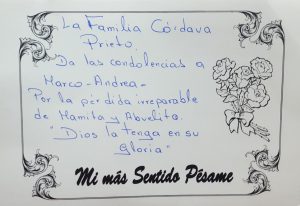 La Familia Córdava
Prieto.
Da las condolencias a
Marco-Andrea-
Por la pérdida irreparable
de Mamita y Abuelita.
"Dios la tenga en su
Gloria"
Mi más Sentido Pésame